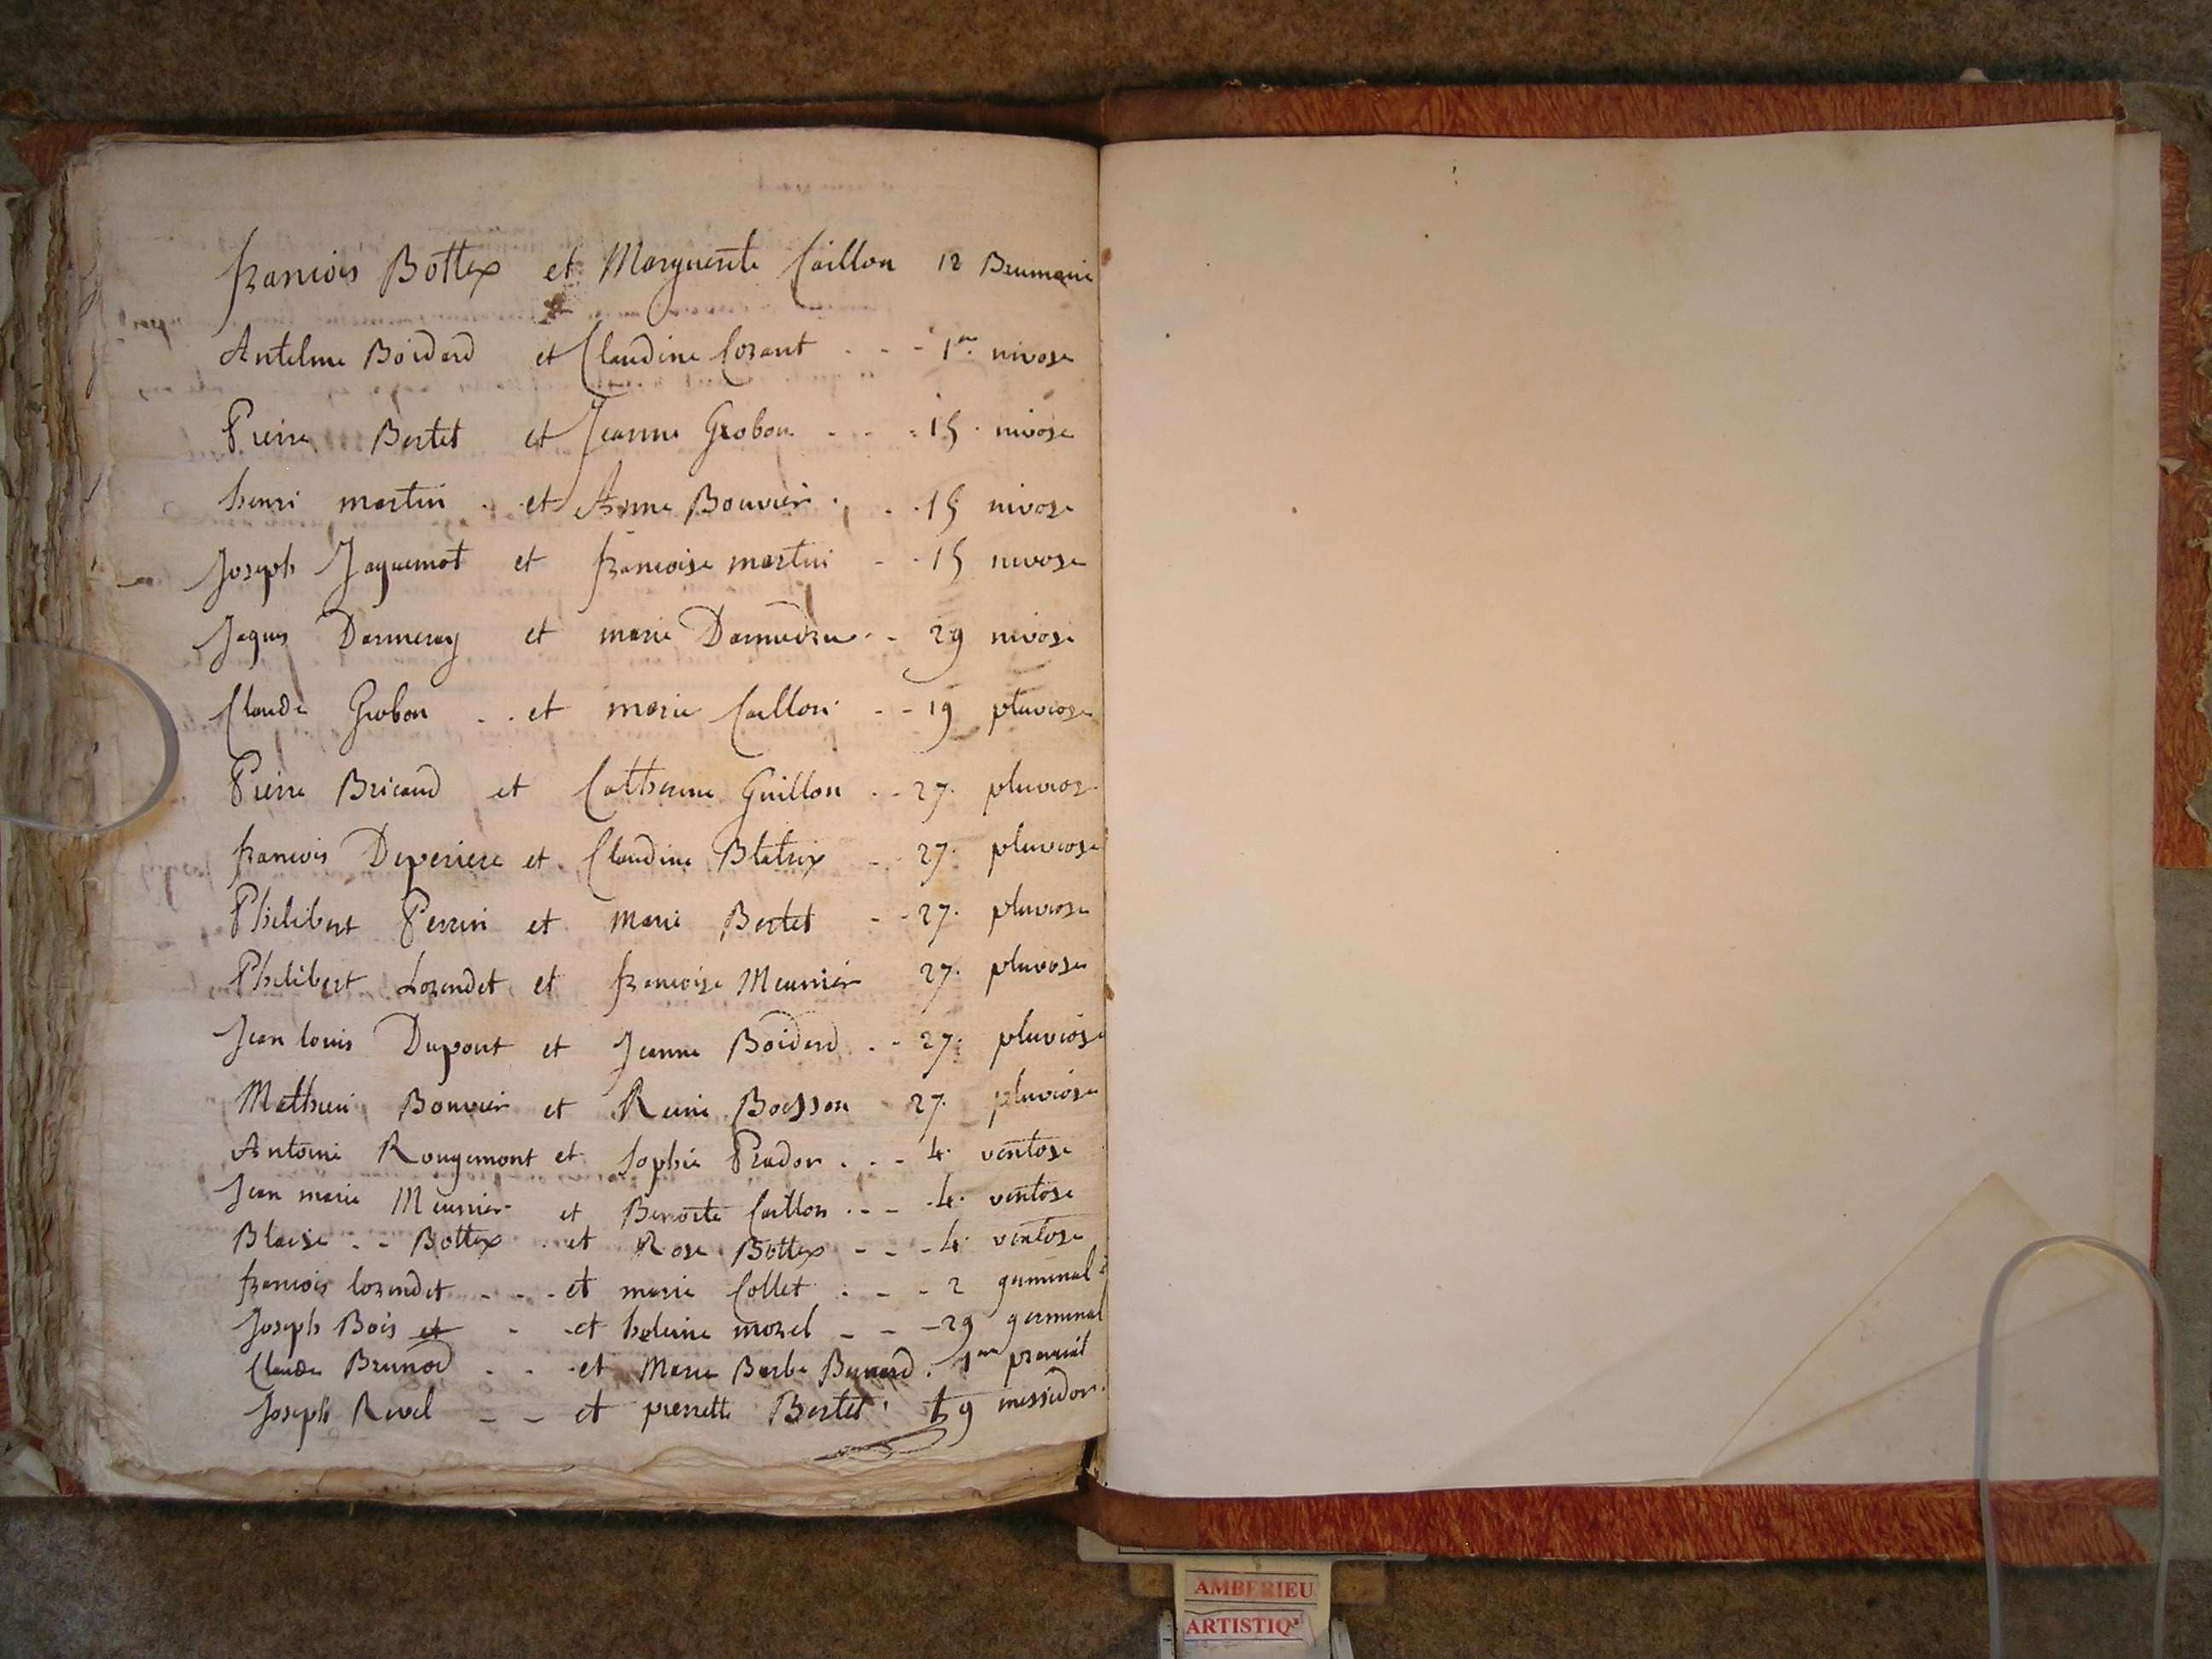 francois Bottex et Marguerite Caillon 12 Brumaire
Antelme Boidard et Claudine Corant - - - 1er nivose
Pierre Bertet et Jeanne Grobon - - - 15 nivose
henri martin et Anne Bouvier - - 15 nivose
Joseph Jaquemot et francoise martin - - 15 nivose
Jaques et marie - - 29 nivose
Claude Grobon - - et marie Caillon - - 19 pluviose
Pierre Bricaud et Catherine Guillon - - 27. pluviose
francois Deperiere et Claudine Blatrix - - 27. pluviose
Philibert Perrin et Marie Bertet - - 27. pluviose
Philibert Lorendet et francoise Meunier 27. pluviose
Jean louis Dupont et Jeanne Boidard - - 27. pluviose
Mathieu Bouvier et Reine Boisson 27. pluviose
Antoine Rougemont et Sophie Pradon - - - 4. ventose
Jean marie Meunier et Benoite Caillon - - - 4. ventose
Blaise - - Bottex et Rose Bottex - - - 4. ventose
francois Lorendet - - - et marie Collet - - - 2 germinal
Joseph Bois et - - et heleine morel - - - 29 germinal
Claude Brunod - - - et Marie Barbe 1er prairial
Joseph Revel - - et pierrette Bertet 19 messidor
AMBERIEU
ARTISTIQ